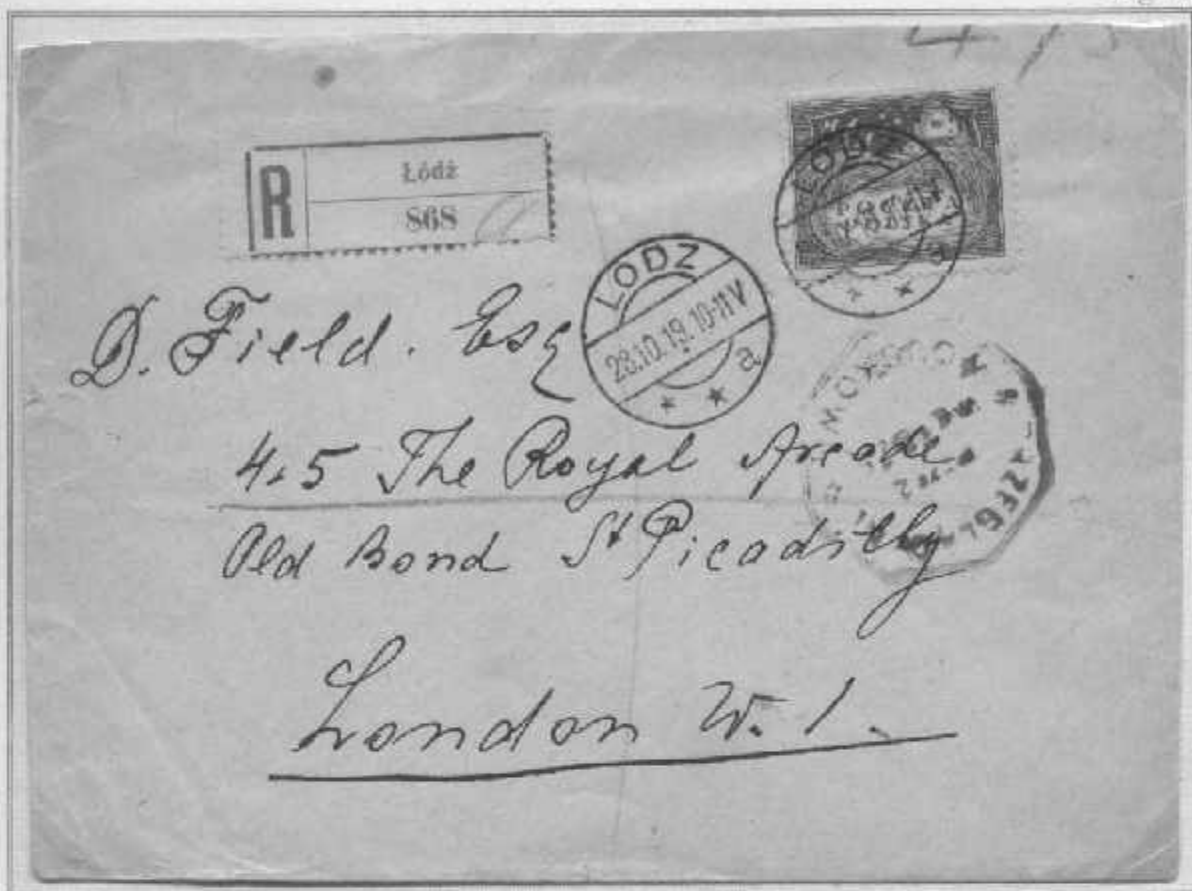 R
Łódź
868
LODZ
28.10.19.10-11V
a
LODZ
D. Field. Esq
4.5 The Royal Arcade
Old Bond St Picadilly
London W. 1.